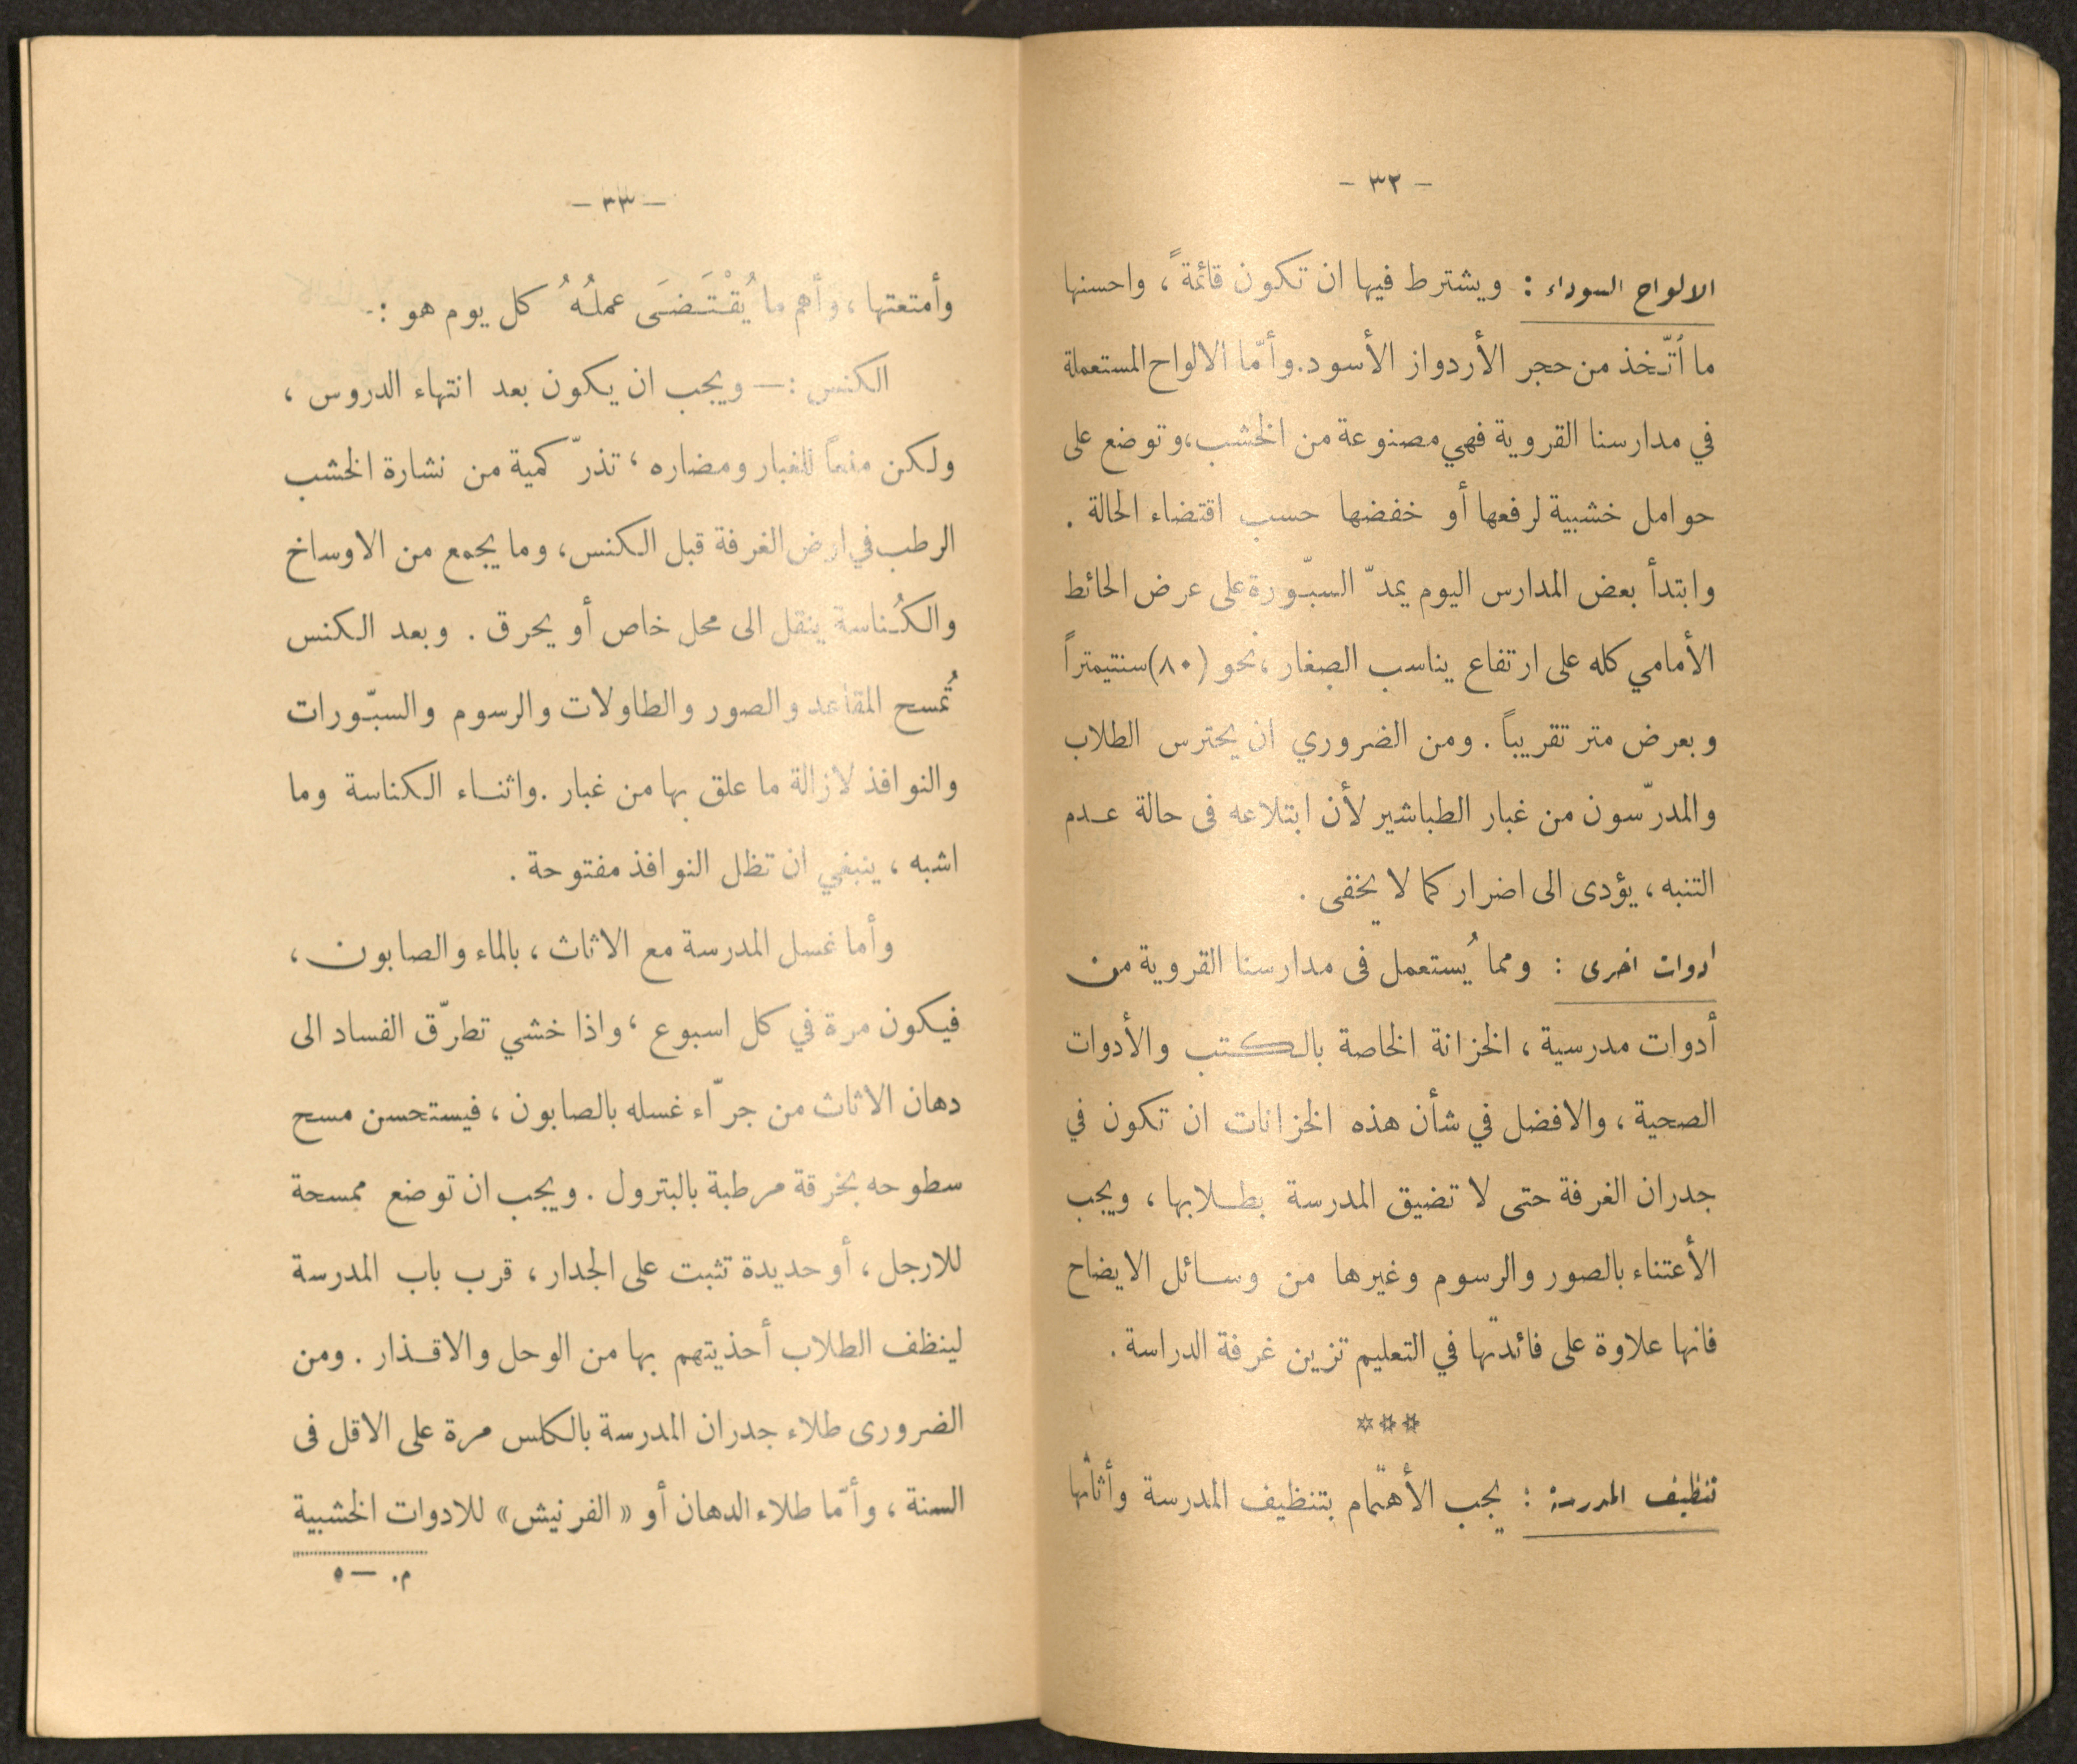 - ٣٢ -
الالواح السوداء : ويشترط فيها ان تكون قائمةً ، واحسنها
ما اُتّخذ من حجر الأردواز الأسود. وأمّا الالواح المستعملة
في مدارسنا القروية فهي مصنوعة من الخشب، وتوضع على
حوامل خشبية لرفعها أو خفضها حسب اقتضاء الحالة .
وابتدأ بعض المدارس اليوم يمدّ السبّورة على عرض الحائط
الأمامي كله على ارتفاع يناسب الصغار ، نحو (٨٠) سنتيمتراً
وبعرض متر تقريباً . ومن الضروري ان يحترس الطلاب
والمدرّسون من غبار الطباشير لأن ابتلاعه فى حالة عدم
التنبه ، يؤدى الى اضرار كما لا يخفى .
ادوات اخرى : ومما يُستعمل فى مدارسنا القروية من
أدوات مدرسية ، الخزانة الخاصة بالكتب والأدوات
الصحية ، والافضل في شأن هذه الخزانات ان تكون في
جدران الغرفة حتى لا تضيق المدرسة بطلابها ، ويجب
الأعتناء بالصور والرسوم وغيرها من وسائل الايضاح
فانها علاوة على فائدتها في التعليم تزين غرفة الدراسة .
***
تنظيف المدرسة : يجب الأهتمام بتنظيف المدرسة وأثاثها
- ٣٣ -
وأمتعتها ، وأهم ما يُقْتَضَى عملُهُ كل يوم هو :-
الكنس :— ويجب ان يكون بعد انتهاء الدروس ،
ولكن منعاً للغبار ومضاره ، تذرّ كمية من نشارة الخشب
الرطب في ارض الغرفة قبل الكنس ، وما يجمع من الاوساخ
والكُناسة ينقل الى محل خاص أو يحرق . وبعد الكنس
تُمسح المقاعد والصور والطاولات والرسوم والسبّورات
والنوافذ لازالة ما علق بها من غبار . واثناء الكناسة وما
اشبه ، ينبغي ان تظل النوافذ مفتوحة .
وأما غسل المدرسة مع الاثاث ، بالماء والصابون ،
فيكون مرة في كل اسبوع ، واذا خشي تطرّق الفساد الى
دهان الاثاث من جرّاء غسله بالصابون ، فيستحسن مسح
سطوحه بخرقة مرطبة بالبترول . ويجب ان توضع ممسحة
للارجل ، أو حديدة تثبت على الجدار ، قرب باب المدرسة
لينظف الطلاب أحذيتهم بها من الوحل والاقذار . ومن
الضرورى طلاء جدران المدرسة بالكلس مرة على الاقل فى
السنة ، وأمّا طلاء الدهان أو « الفرنيش » للادوات الخشبية
م. — ٥